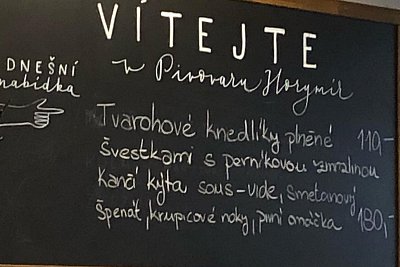 VÍTEJTE
v Pivovaru Horymír
DNEŠNÍ
nabídka
Tvarohové knedlíky plněné 110,-
Švestkami s perníkovou zmrzlinou
Kančí kýta sous-vide, smetanový
špenát, krupicové noky, pivní omáčka 190,-